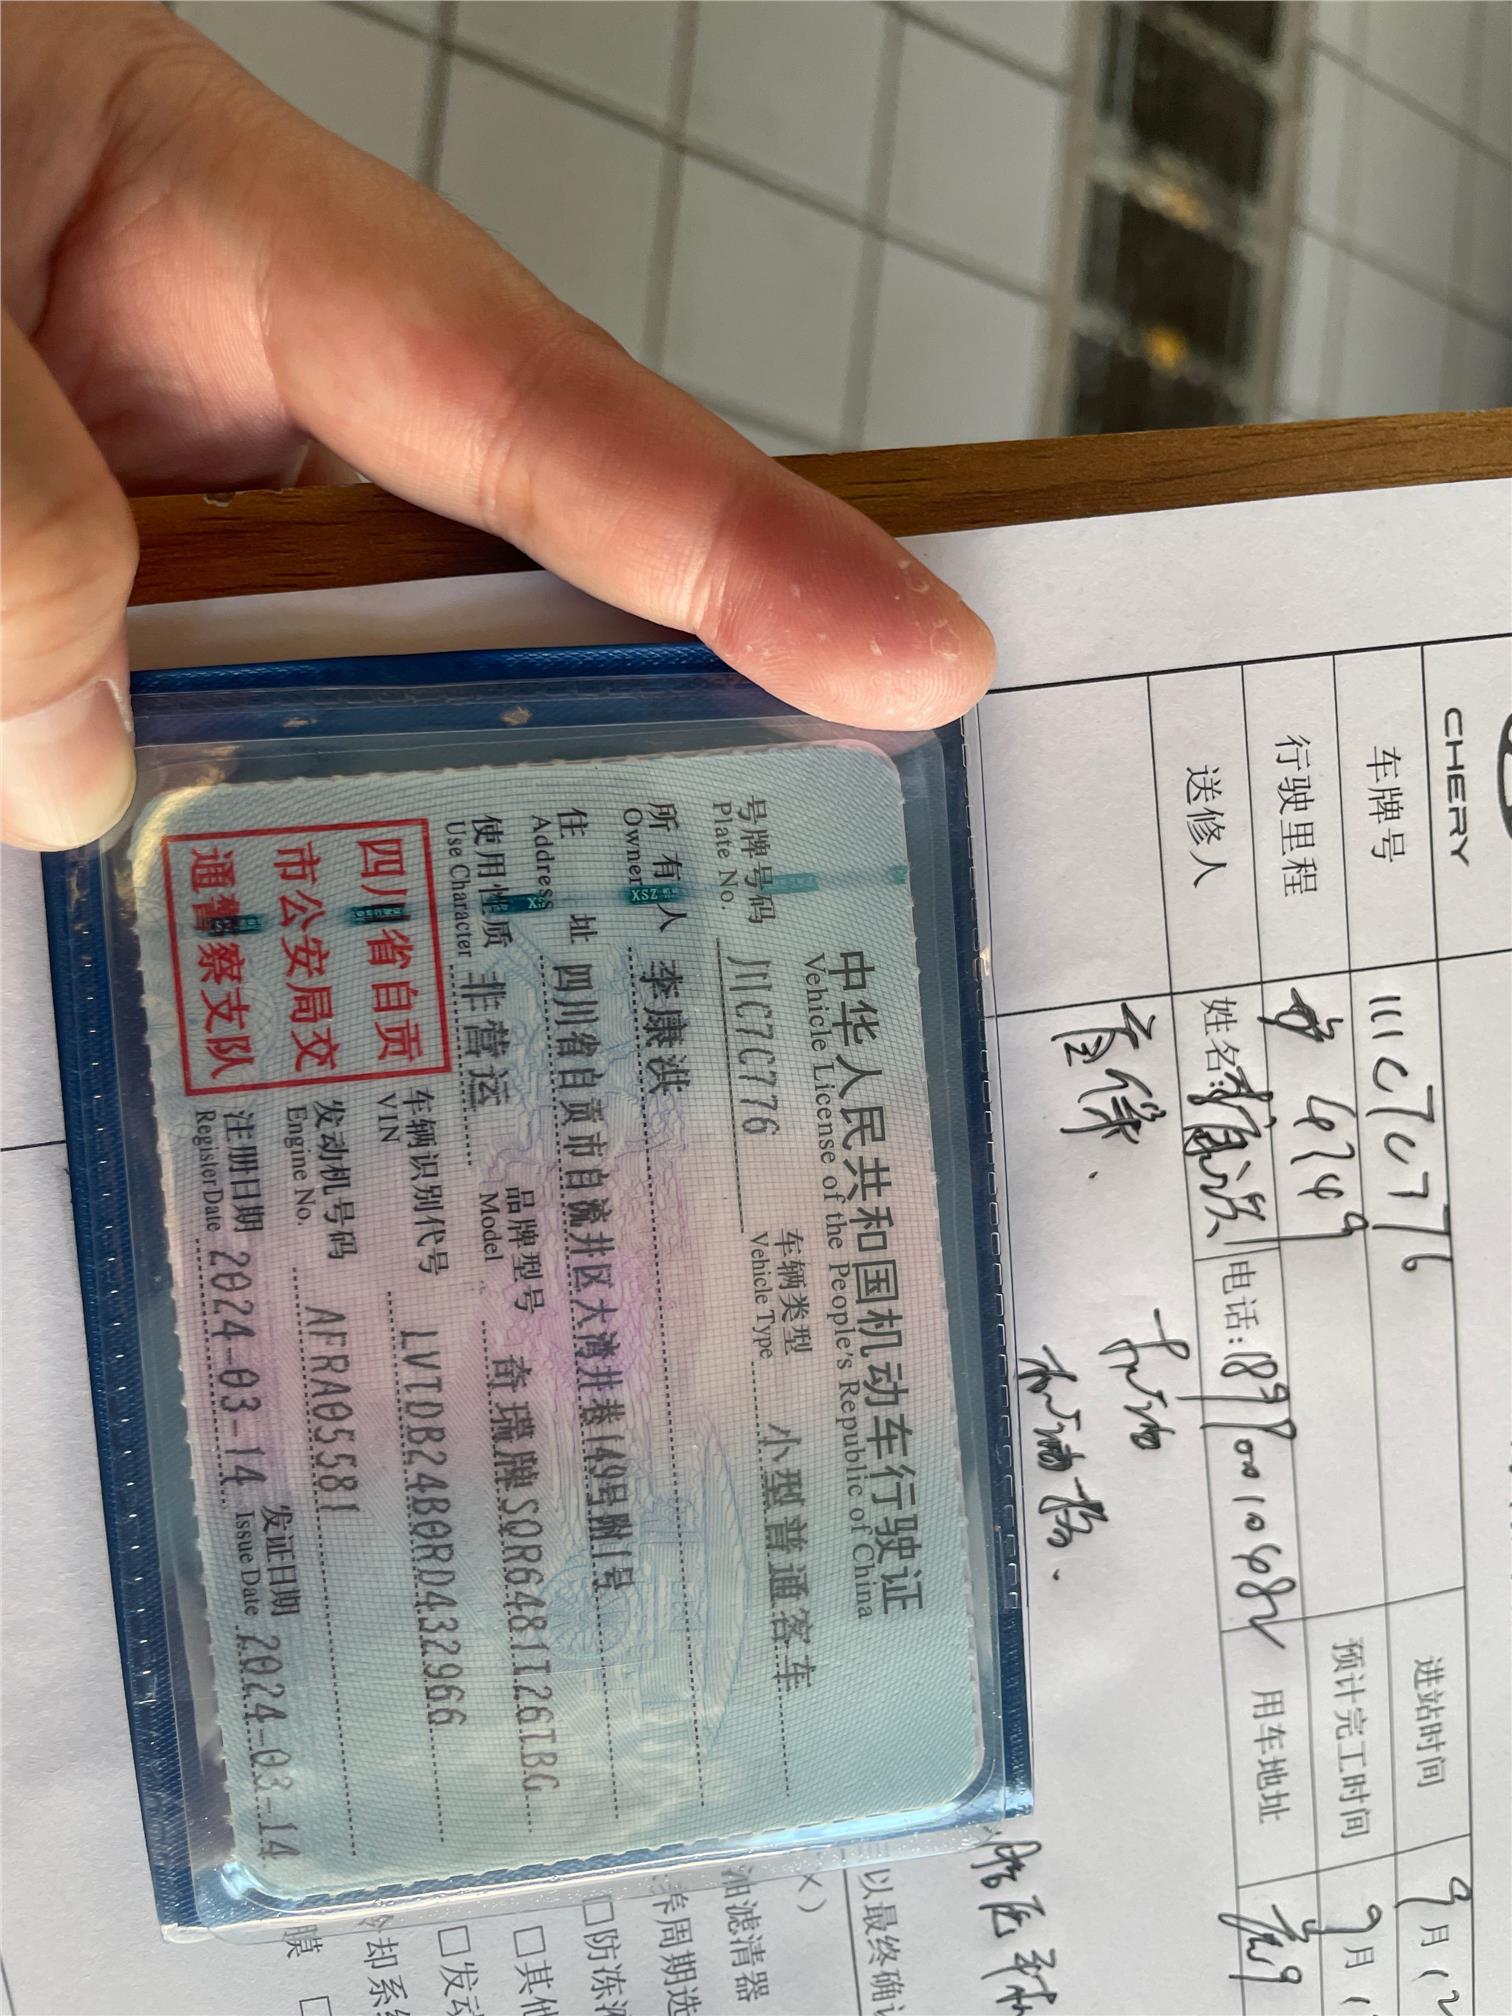 中华人民共和国机动车行驶证
Vehicle License of the People's Republic of China
号牌号码 川C7C776 车辆类型 小型普通客车
Plate No. Vehicle Type
所有人 李康洪
Owner
住址 四川省自贡市自流井区大湾井巷149号附1号
Address
使用性质 非营运 品牌型号 奇瑞牌SQR6481T26TBG
Use Character Model
四川省自贡
市公安局交
通警察支队
车辆识别代号 LVTDB24B0RD432966
VIN
发动机号码 AFRA05581
Engine No.
注册日期 2024-03-14 发证日期 2024-03-14
Register Date Issue Date
CHERY
车牌号 川C7C776 进站时间 9月
行驶里程 4749 预计完工时间 9月
送修人 姓名:李康洪 电话: 用车地址
首保.
机油
机油格.
以最终确
油滤清器
养周期选
□防冻
□其他
□发动
冷却系统
膜